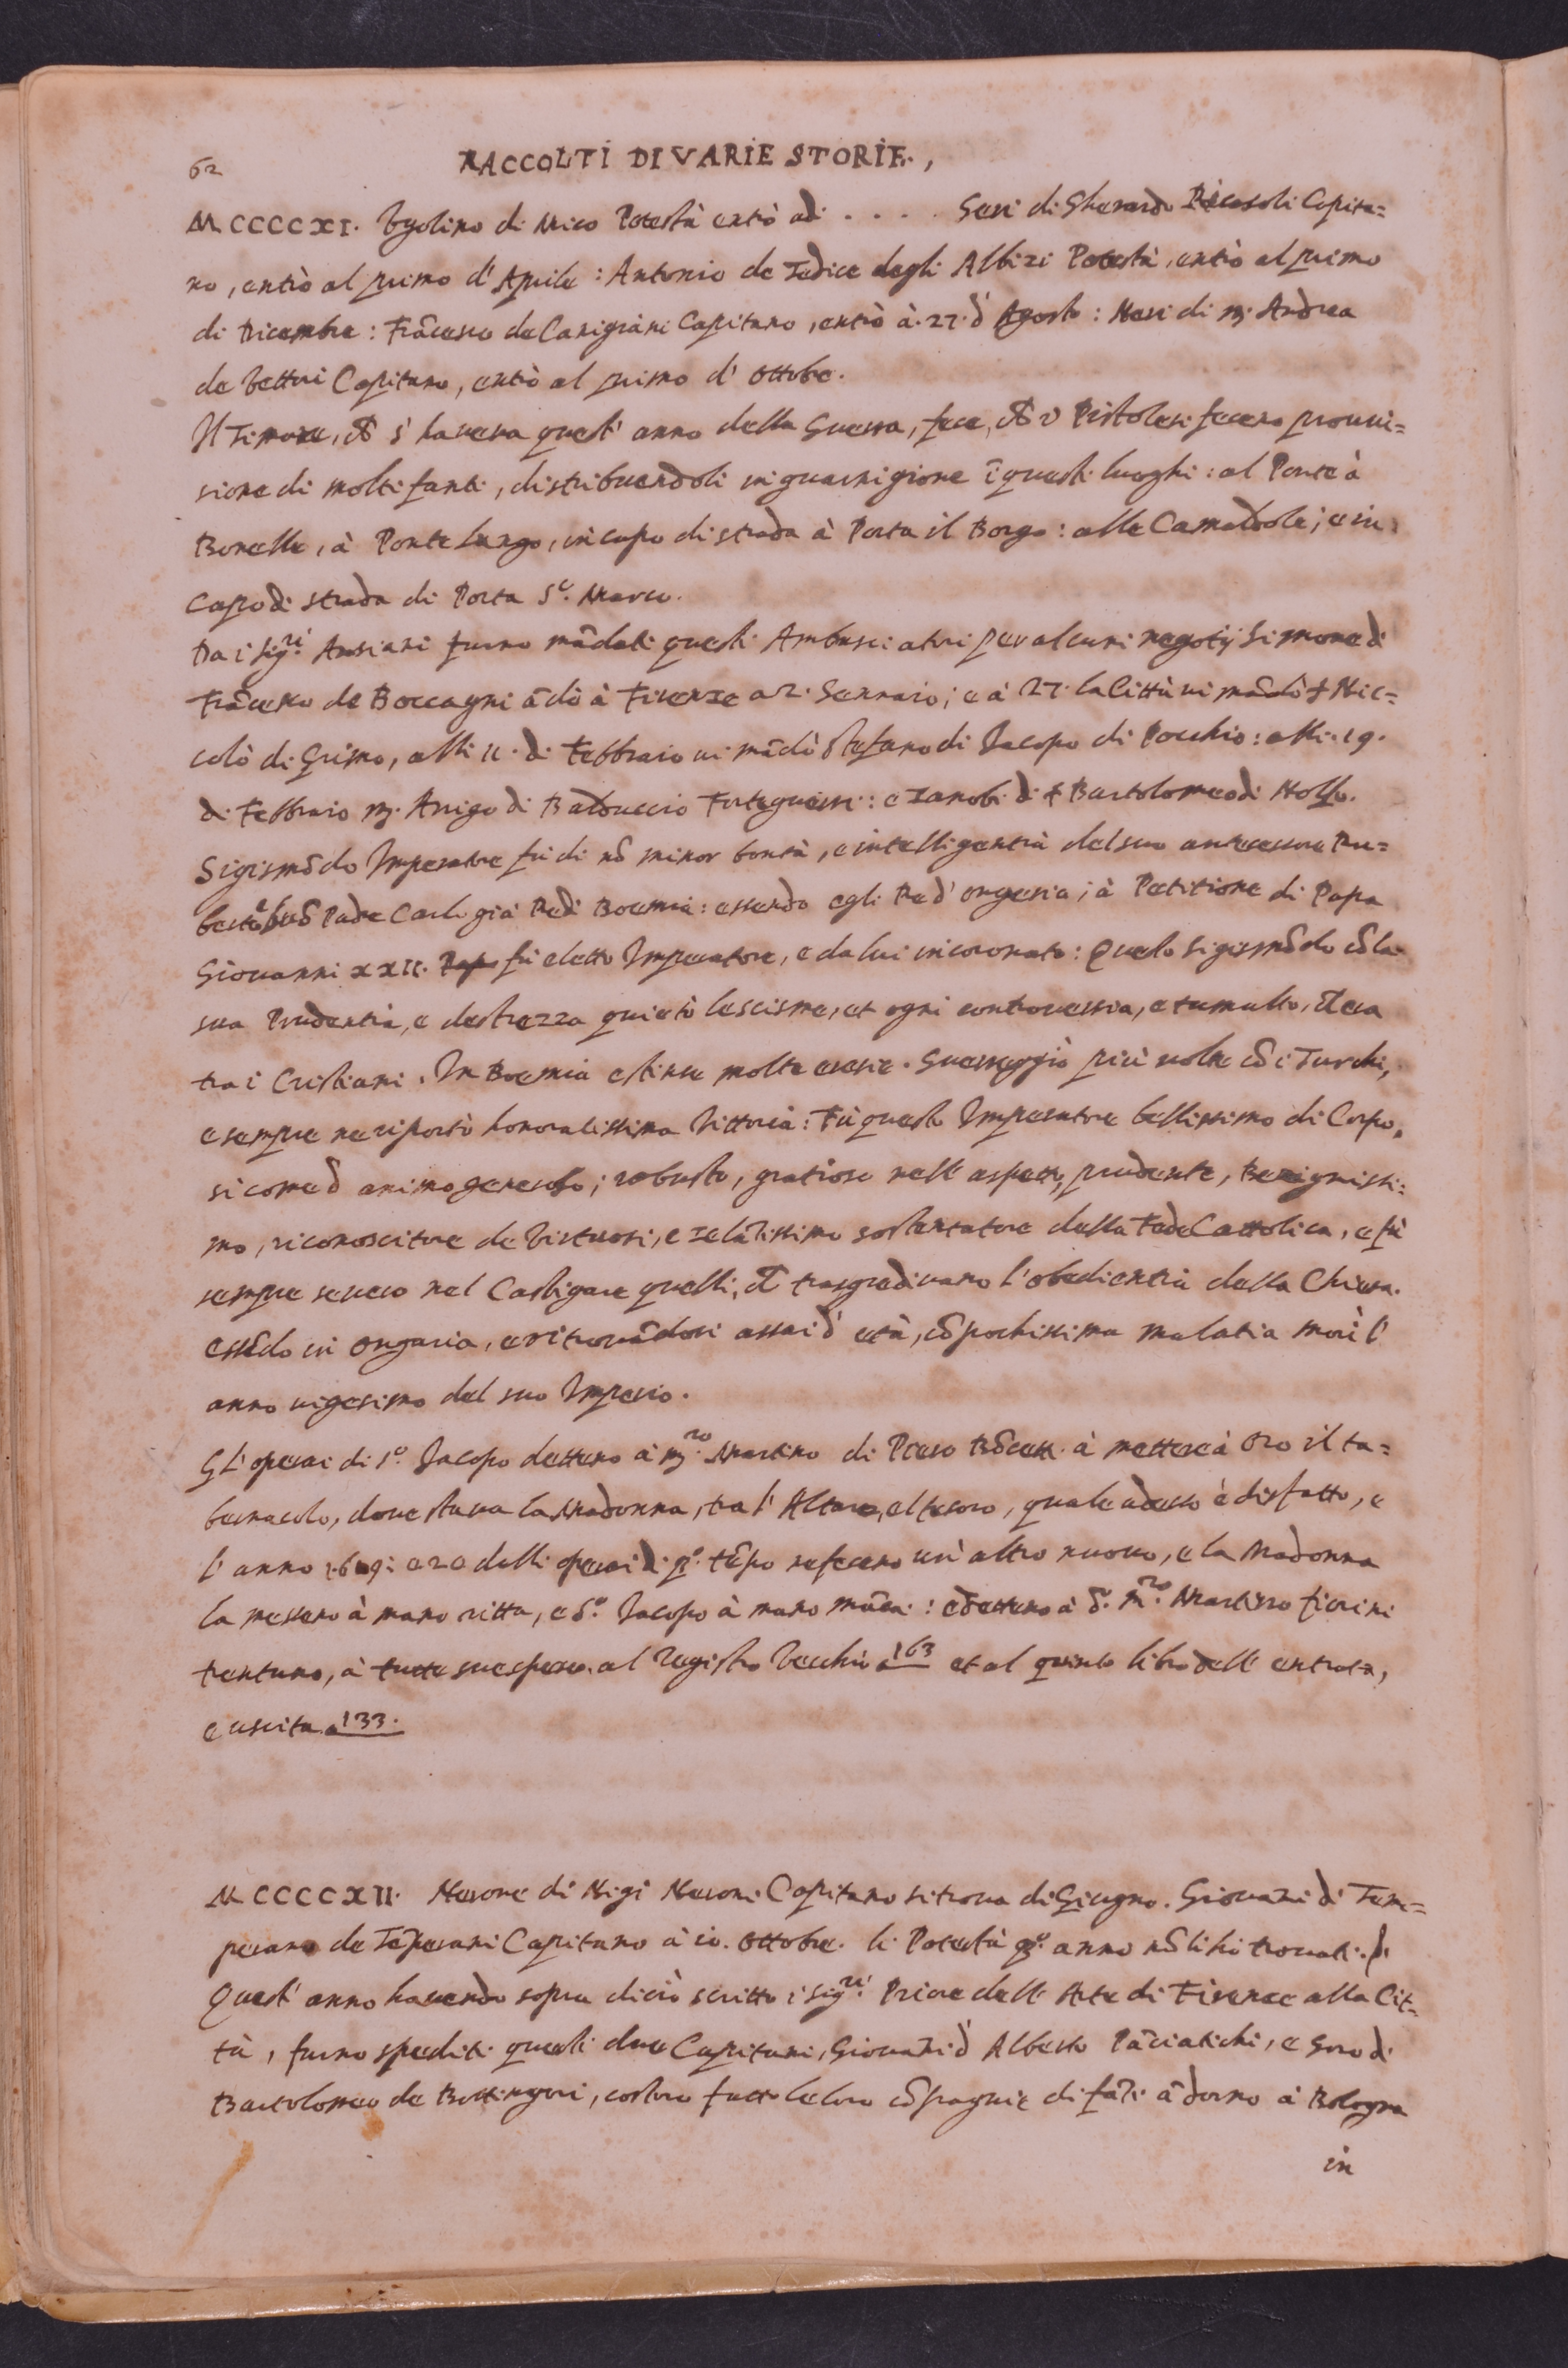 62
RACCOLTI DI VARIE STORIE.,
MCCCCXI. Vgolino di Mico Potestà entrò adi . . . . Geri di Gherardo Ricasoli Capita=
no, entrò al primo d'Aprile: Antonio de Iudice degli Albizi Potestà, entrò al primo
di Dicembre: Frācesco de Canigiani Capitano, entrò à. 27. d'Agosto: Neri di m. Andrea
de Vettori Capitano, entrò al primo d'ottobre.
Il Timore, ch s'haueua quest'anno della Guerra, fece, ch i Pistolesi fecero proui=
sione di molti fanti, distribuendoli in guarnigione ī questi luoghi: al Ponte à
Bonelle, à Ponte Lungo, in capo di strada à Porta il Borgo: alle Camaldole; e in
Capo di strada di Porta S.o Marco.
Da i Sig.ri Ansiani furno mādati questi Ambasciatori per alcuni negotij Simone di
Frācesco de Boccagni ādò à Firenze a 2. Gennaio; e à 27. la Città ui mādò Nic=
colò di Grimo, alli 11. di Febbraio ui mādò Stefano di Jacopo di Pocchio: alli. 19.
di Febbraio m. Arrigo di Balduccio Forteguerri: e Zanobi di Bartolomeo di Nosso.
Sigismōdo Imperatore fù di nō minor bontà, e intelligentia del suo antecessore Ru=
berto Padre Carlo già Re di Boemia: essendo egli Re d'ongeria; à Petitione di Papa
Giouanni XXII. Papa fù eletto Imperatore, e da lui incoronato: Questo Sigismōdo cō la
sua Prudentia, e destrezza quietò le scisme, et ogni controuersia, e tumulto, ch era
tra i Cristiani. In Boemia estinse molte eresie. Guerreggiò più uolte cō i Turchi,
e sempre ne riportò honoratissima Vittoria: Fù questo Imperatore bellissimo di Corpo,
si come d'animo generoso; robusto, gratioso nell'aspetto, prudente, Benignissi=
mo, riconoscitore de Virtuosi, e zelātissimo sostentatore della Fede Cattolica, e fù
sempre seuero nel Castigare quelli, ch trasgrediuano l'obedientia della Chiesa.
Essēdo in ongaria, e ritrouādosi assai d'età, cō pochissima malatia morì l'
anno uigesimo del suo Imperio.
Gl'operai di S.o Jacopo dettero à m.ro Martino di Piero à mettere à oro il ta=
bernacolo, doue staua la Madonna, tra l'Altare, e'l tesoro, quale adesso è disfatto, e
l'anno 1609: e 20 delli operai di q.o tēpo refecero un'altro nuouo, e la Madonna
la messero à mano ritta, e S.o Jacopo à mano māca: e dettero à d. m.ro Martino fiorini
trentuno, à tutte sue spese. al Registro Vecchio a 163 et al quinto libro dell'entrata,
e uscita. a 133.
MCCCCXII. Nerone di Nigi Neroni Capitano si troua di Giugno. Giouāni di Tem=
perano de Tēperani Capitano à 10. ottobre. li Potestà q.o anno nō li hò trouati.
Quest'anno hauendo sopra di ciò scritto i Sig.ri Priore dell'Arte di Firenze alla Cit=
tà, furno spediti questi due Capitani, Giouāni d'Alberto Pāciatichi, e Goro di
Bartolomeo de Bottingori, costoro fatto le loro cōpagnie di fāti ādorno à Bologna
in